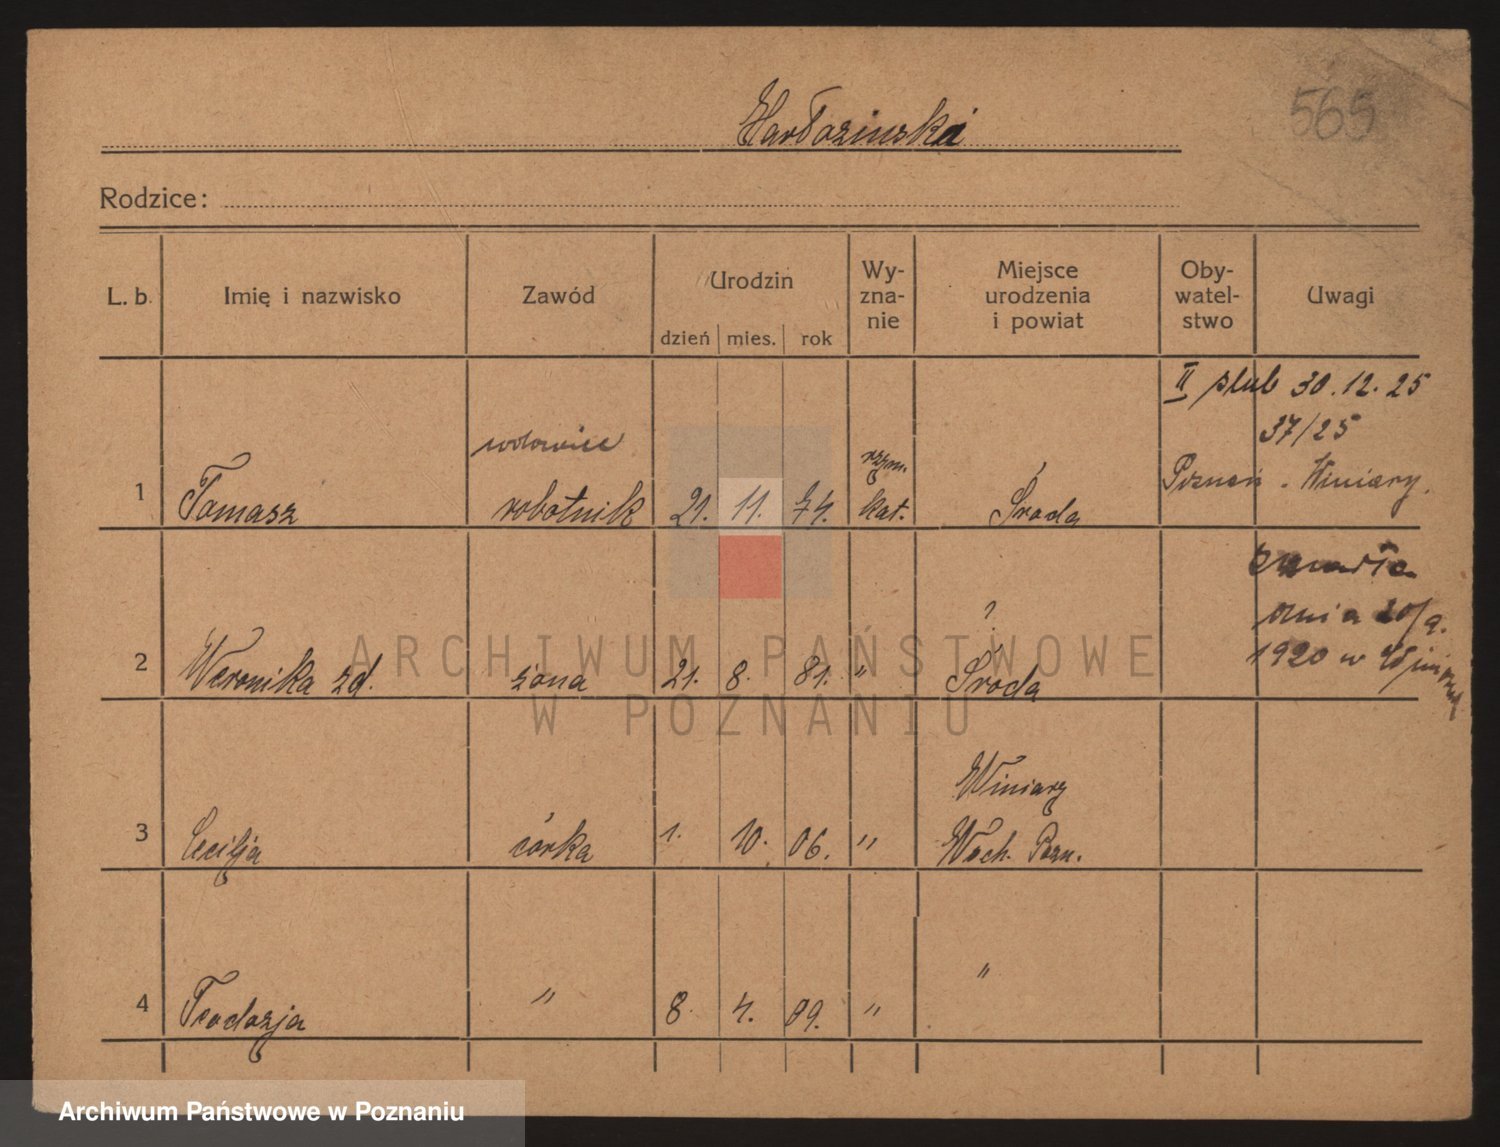 565
Rodzice:
L. b. Imię i nazwisko Zawód Urodzin dzień mies. rok Wy-zna-nie Miejsce urodzenia i powiat Oby-watel-stwo Uwagi
II ślub 30.12.25
37/25
Poznań - Winiary.
1 Tomasz robotnik 21. 11. 74. rzym. kat. Środa
zmarła
dnia 20/9.
1920 w
2 Weronika zd. żona 21. 8. 81. " ? Środa
3 Cecilja córka 1. 10. 06. " Winiary
Wsch. Pozn.
4 Teodozja " 8. 4. 09. " "
ARCHIWUM PAŃSTWOWE
W POZNANIU
Archiwum Państwowe w Poznaniu